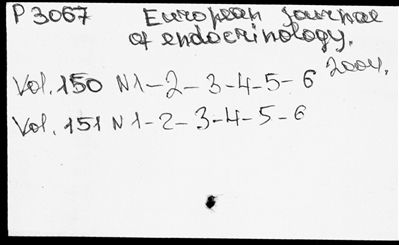 P 3067 European Journal
of endocrinology.
2004.
Vol. 150 N1-2-3-4-5-6
Vol. 151 N1-2-3-4-5-6